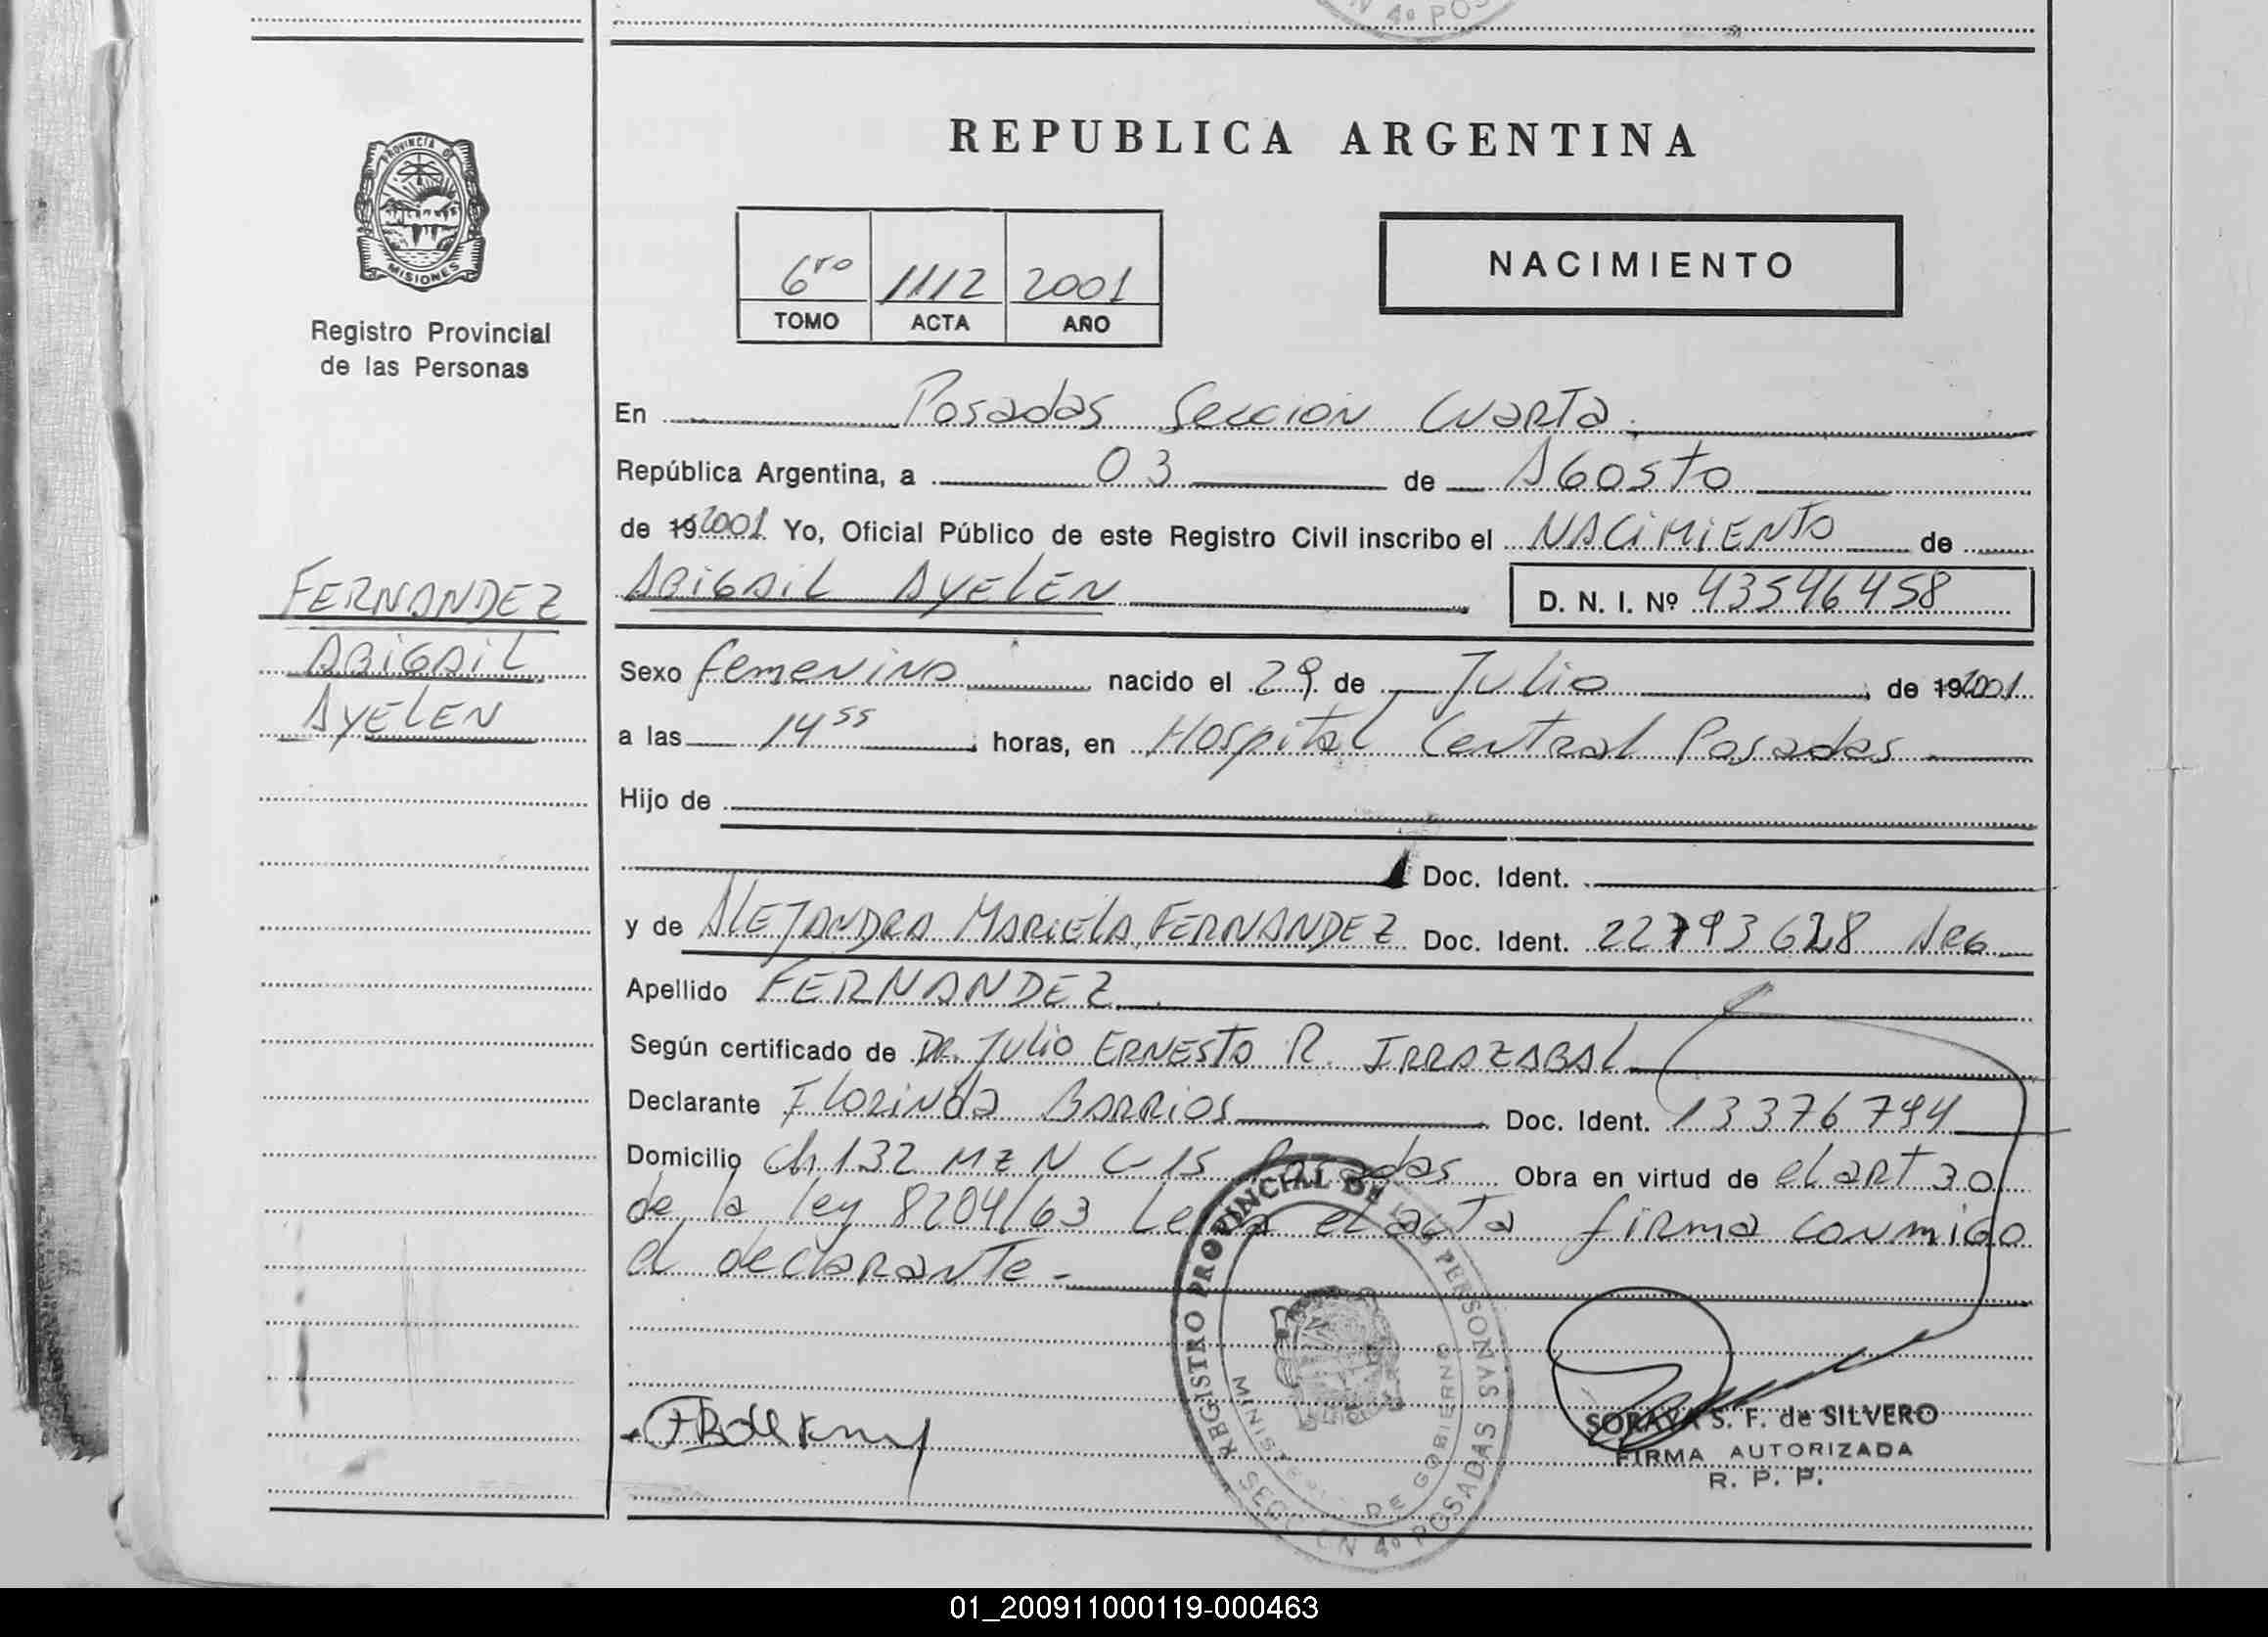 N 4º POS
REPUBLICA ARGENTINA
PROVINCIA DE
MISIONES
Registro Provincial
de las Personas
6ro 1112 2001
TOMO ACTA AÑO
NACIMIENTO
En Posadas Seccion Cuarta.
República Argentina, a 03 de Agosto
de 19 2001 Yo, Oficial Público de este Registro Civil inscribo el NACIMIENTO de
ABIGAIL AYELEN D. N. I. Nº 43546458
FERNANDEZ
ABIGAIL
AYELEN
Sexo femenino nacido el 29 de Julio de 19 2001
a las 14 55 horas, en Hospital Central Posadas
Hijo de
Doc. Ident.
y de ALEJANDRA MARIELA FERNANDEZ Doc. Ident. 22793628 Arg
Apellido FERNANDEZ
Según certificado de DR. JULIO ERNESTO R. IRRAZABAL
Declarante Florinda BARRIOS Doc. Ident. 13376794
Domicilio Ch 132 MZ N C-15 Posadas Obra en virtud de el ART 30
de la ley 8204/63 Leida el acta firma conmigo
el declarante.-
REGISTRO PROVINCIAL DE LAS PERSONAS
MINISTERIO DE GOBIERNO
SECCION 4º POSADAS
SORAYA S. F. de SILVERO
FIRMA AUTORIZADA
R. P. P.
01_200911000119-000463